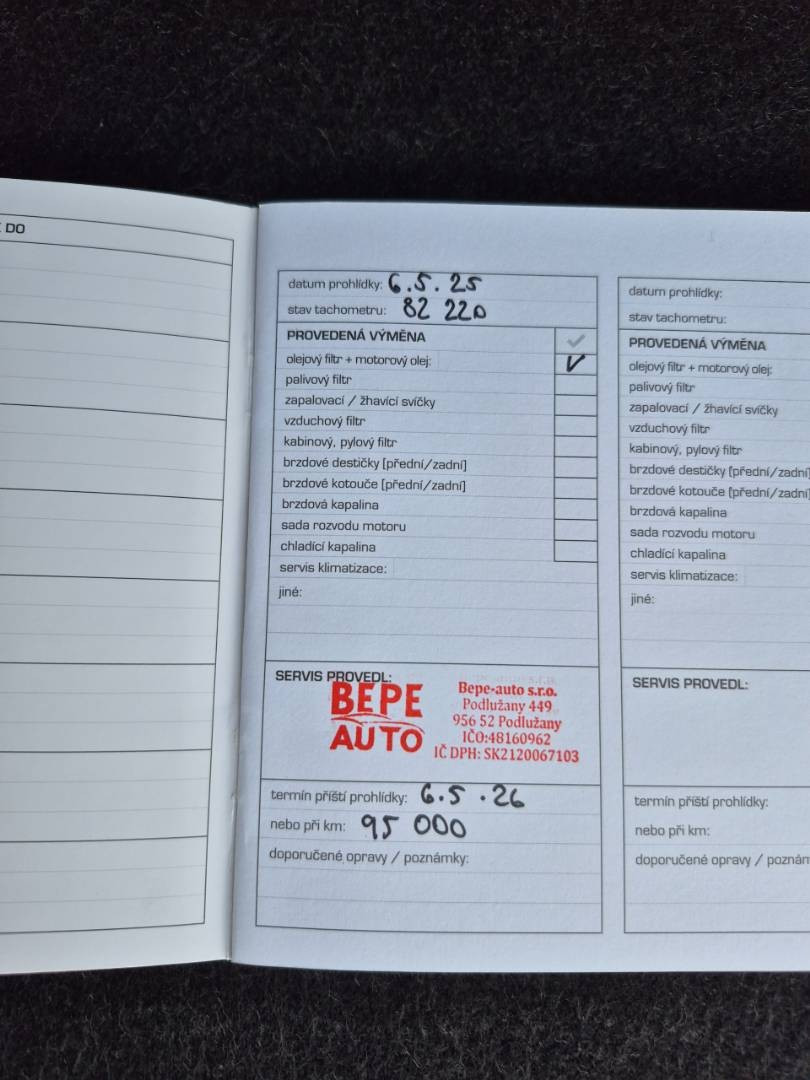 DO
datum prohlídky: 6.5.25
stav tachometru: 82 220
PROVEDENÁ VÝMĚNA
olejový filtr + motorový olej:
palivový filtr
zapalovací / žhavící svíčky
vzduchový filtr
kabinový, pylový filtr
brzdové destičky [přední/zadní]
brzdové kotouče [přední/zadní]
brzdová kapalina
sada rozvodu motoru
chladící kapalina
servis klimatizace:
jiné:
SERVIS PROVEDL:
BEPE
AUTO
Bepe-auto s.r.o.
Podlužany 449
956 52 Podlužany
IČO:48160962
IČ DPH: SK2120067103
termín příští prohlídky: 6.5.26
nebo při km: 95 000
doporučené opravy / poznámky:
datum prohlídky:
stav tachometru:
PROVEDENÁ VÝMĚNA
olejový filtr + motorový olej:
palivový filtr
zapalovací / žhavící svíčky
vzduchový filtr
kabinový, pylový filtr
brzdové destičky [přední/zadní]
brzdové kotouče [přední/zadní]
brzdová kapalina
sada rozvodu motoru
chladící kapalina
servis klimatizace:
jiné:
SERVIS PROVEDL:
termín příští prohlídky:
nebo při km:
doporučené opravy / poznám